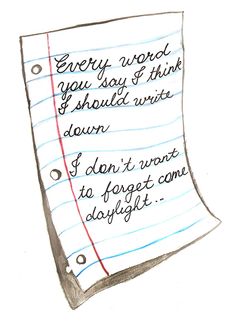 Every word
you say I think
I should write
down
I don't want
to forget come
daylight...